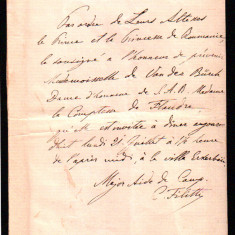 Par ordre de Leurs Altesses
le Prince et la Princesse de Roumanie
le soussigné a l'honneur de prévenir
Mademoiselle de Van der
Dame d'honneur de S.A.R. Madame
la Comptesse de Flandre
qu'elle est invitée à dîner aujour
d'hui lundi 21 Juillet à ½ heure
de l'après midi, à la villa
Major Aide de Camp